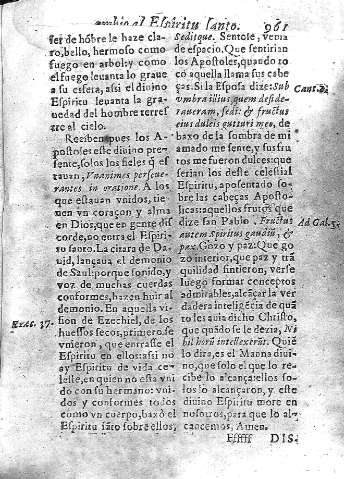 embio al Espiritu santo. 961
ser de hõbre le haze cla-
ro, bello, hermoso como
fuego en arbol: y como
el fuego leuanta lo graue
a su esfera, assi el diuino
Espiritu leuanta la gra-
uedad del hombre terres
tre al cielo.
Reciben pues los A-
postoles este diuino pre-
sente, solos los fieles q̃ es
tauan, Vnanimes perseue-
rantes in oratione. A los
que estauan vnidos, tie-
nen vn coraçon y alma
en Dios, que en gente dis
corde, no entra el Espiri-
to santo. La citara de Da-
uid, lançaua el demonio
de Saul: porque sonido, y
voz de muchas cuerdas
conformes, hazen huir al
demonio. En aquella vi-
Ezec. 37. sion de Ezechiel, de los
huessos secos, primero se
vnieron, que entrasse el
Espiritu en ellos: assi no
ay Espiritu de vida ce-
leste, en quien no esta vni
do con su hermano: vni-
dos y conformes todos
como vn cuerpo, baxò el
Espiritu sãto sobre ellos,
Seditque. Sentose, venia
de espacio. Que sentirian
los Apostoles, quando to
cò aquella llama sus cabe
ças. Si la Esposa dize: Sub Cant. 2.
vmbra illius, quem deside-
raueram, sedi: & fructus
eius dulcis gutturi meo, de-
baxo de la sombra de mi
amado me sente, y sus fru
tos me fueron dulces: que
serian los deste celestial
Espiritu, aposentado so-
bre las cabeças Aposto-
licas: aquellos frutos que
dize san Pablo. Fructus Ad Gal. 5.
autem Spiritus gaudiũ, &
pax. Gozo y paz: Que go
zo interior, que paz y trã
quilidad sintieron, verse
luego formar conceptos
admirables, alcãçar la ver
dadera inteligẽcia de quã
to les auia dicho Christo,
que quãdo se le dezia, Ni
hil horũ intellexerũt. Quiẽ
lo dira, es el Manna diui-
no, que solo el que lo re-
cibe lo alcança: ellos so-
los lo alcançaron, y este
diuino Espiritu more en
nosotros, para que lo al-
cancemos, Amen.
Ffffff DIS-